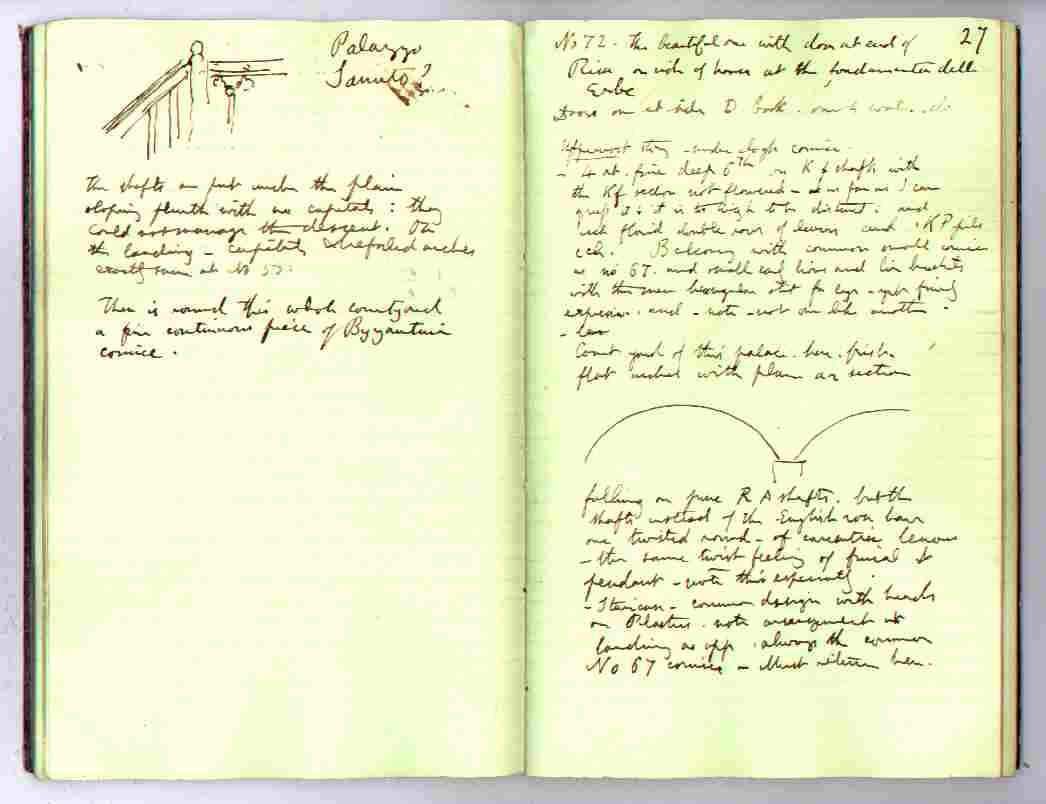 Palazzo
Sanuto?
the shafts are put under the plain
sloping plinth with no capitals: they
could not manage the descent. On
the landing - capitals & trefoiled arches
exactly same as No 52.
There is round this whole courtyard
a fine continuous piece of Byzantine
cornice.
27
No 72 - the beautiful one with door at end of
River on side of house at the fondamenta delle
Erbe
Doors on
Uppermost story - under cornice.
- 4 at. fine deep 6th on K f shafts with
the Kf section not flowered - as far as I can
guess it: it is too high to be distinct: and
rich florid double rows of leaves and KP
Balcony with common small cornice
as no 67. and small lions and lion brackets
with the
expression. and - note - not one like another -
Court yard of this palace. here. first.
flat arches with plain as section
falling on pure R A shafts. but the
shafts instead of the English row have
one twisted round - of leaves
- the same twist feeling of finial &
pendant - note this especially.
- Staircase - common design with heads
on Plasters. note arrangement at
landing as opp. always the common
No 67 cornice - Must return here.